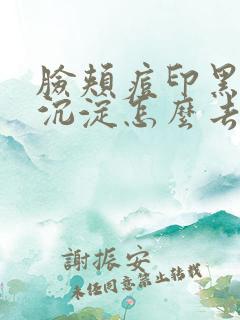 臉頰痘印黑
沉淀怎麼去
謝振安
未任同意禁止转载